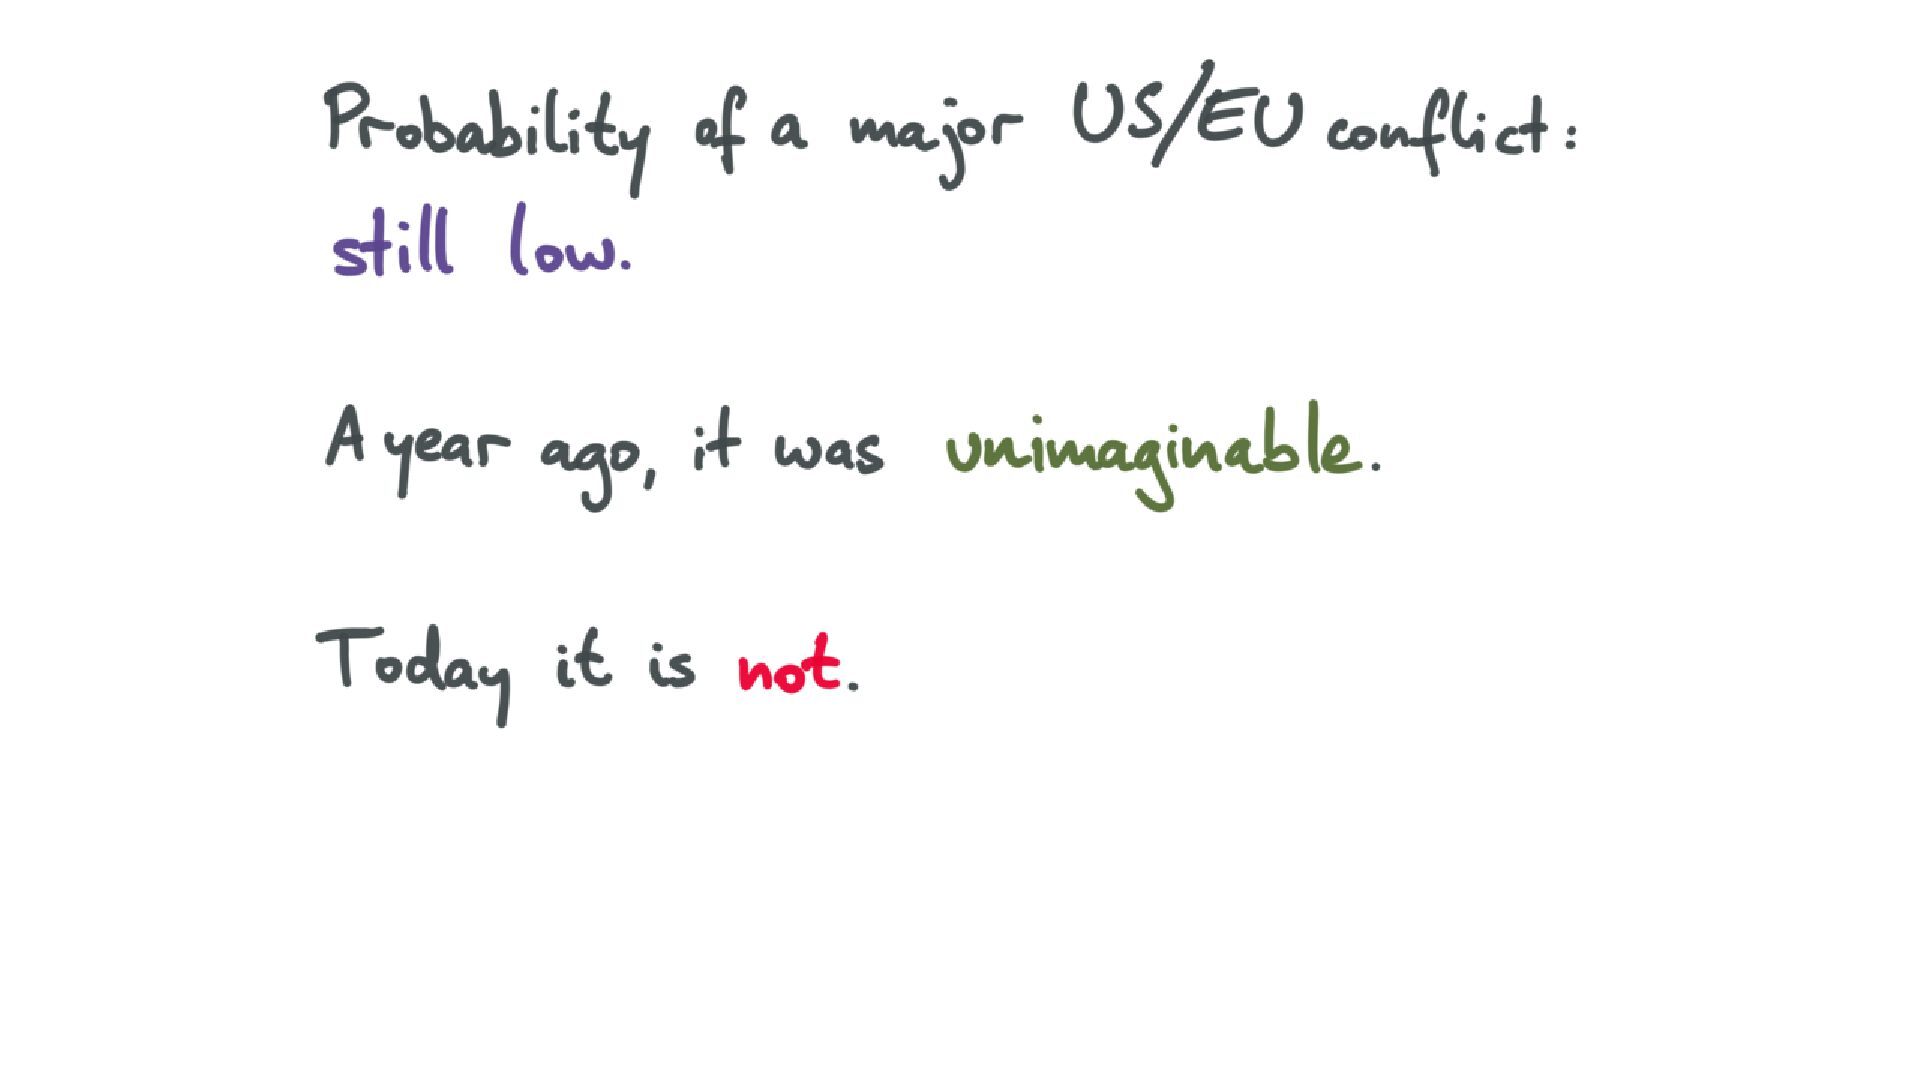 Probability of a major US/EU conflict:
still low.
A year ago, it was unimaginable.
Today it is not.